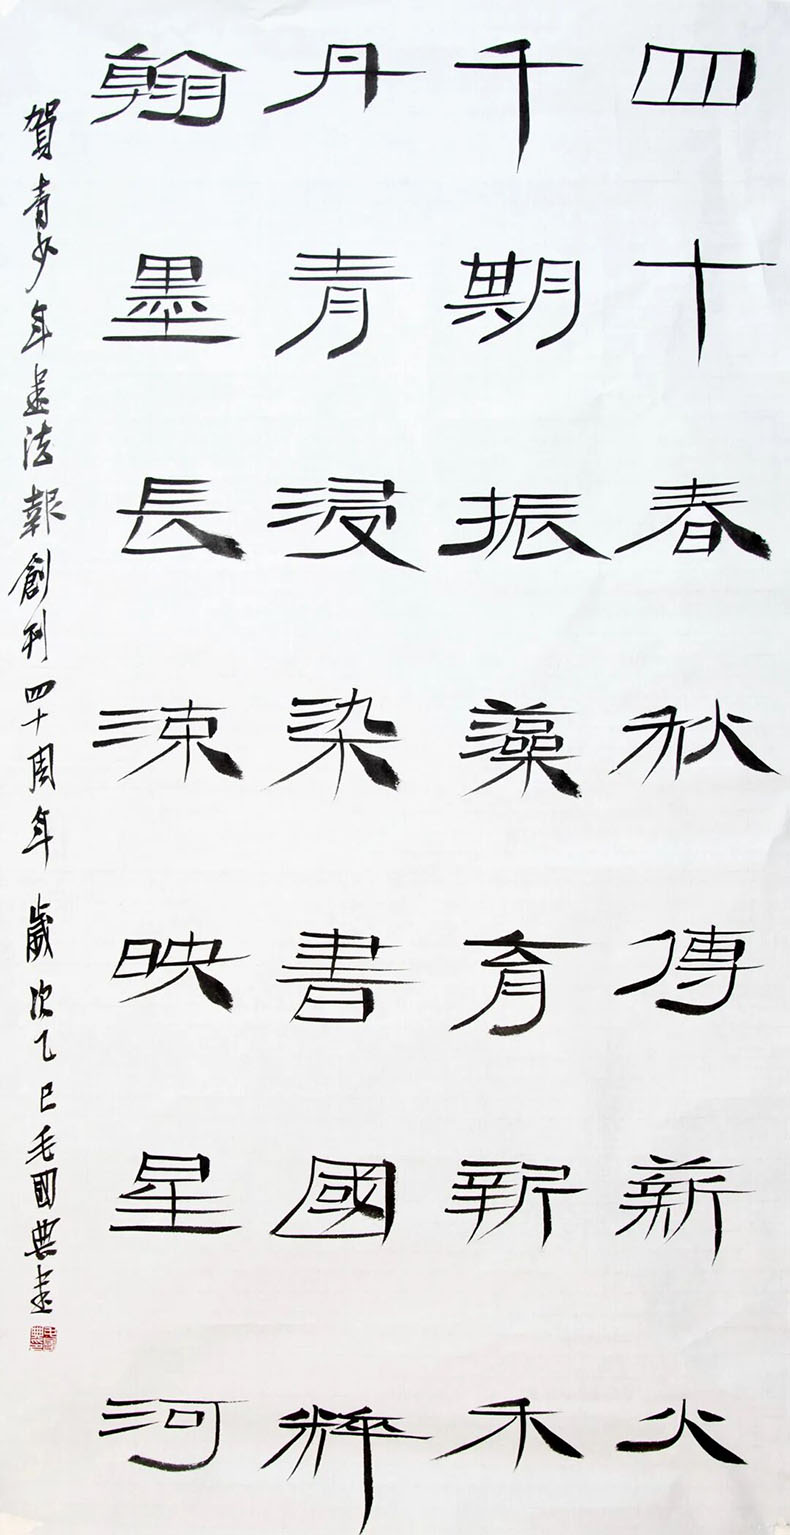 四十春秋傳薪火
千期振藻育新禾
丹青浸染書國粹
翰墨長涼映星河
賀青少年書法報創刊四十周年 歲次乙巳毛國典書